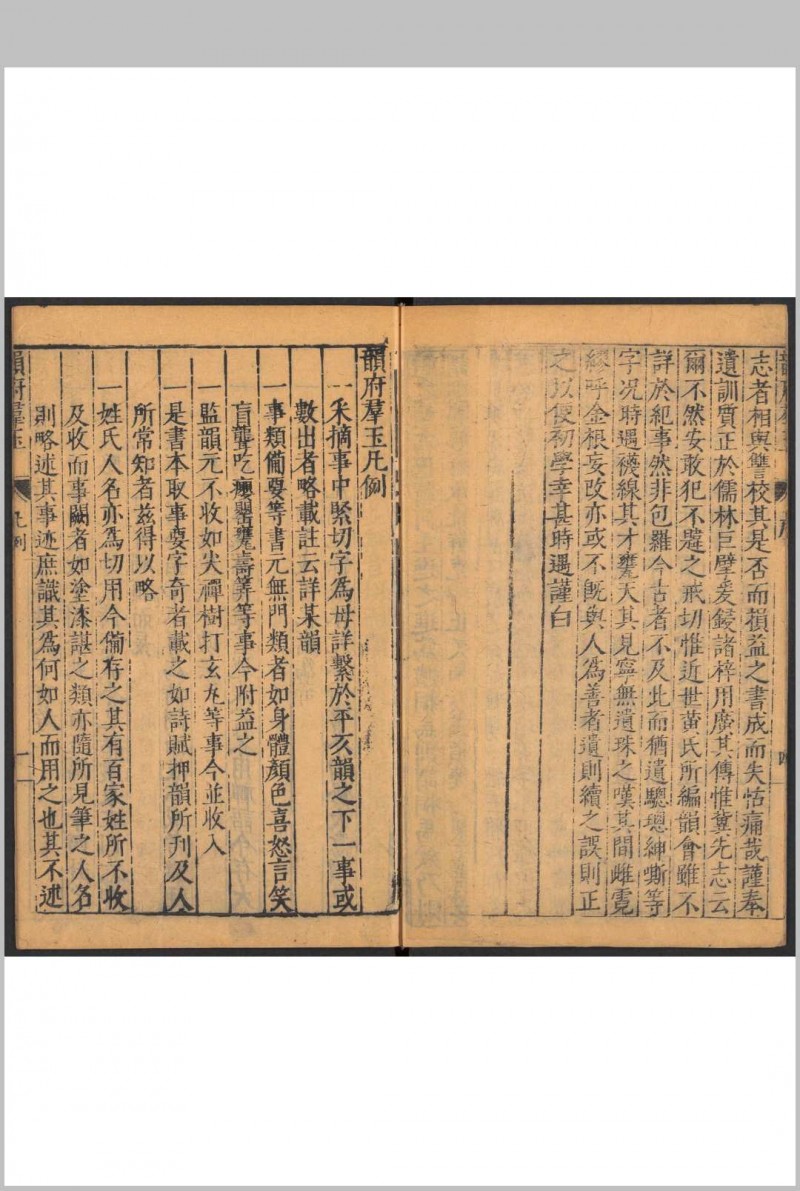 志者相與讐校其是否而損益之書成而失怙痛哉謹奉
遺訓質正於儒林巨擘爰鋟諸梓用廣其傳惟冀先志云
爾不然安敢犯不韙之戒切惟近世黃氏所編韻會雖不
詳於紀事然非包羅今古者不及此而猶遺驄璁紳嘶等
字况時遇襪線其才甕天其見寧無遺珠之嘆其間雌霓
終呼金根妄改亦或不旣與人爲善者遺則續之誤則正
之以便初學幸甚時遇謹白
韻府羣玉凡例
一采摘事中緊切字爲母詳繫於平仄韻之下一事或
數出者略載註云詳某韻
一事類備要等書元無門類者如身體顏色喜怒言笑
盲聾吃癭罌甕壽筭等事今附益之
一監韻元不收如尖禪樹打玄丸等事今並收入
一是書本取事要字奇者載之如詩賦押韻所刊及人
所常知者茲得以略
一姓氏人名亦爲切用今備存之其有百家姓所不收
及收而事闕者如塗漆諶之類亦隨所見筆之人名
則略述其事迹庶識其爲何如人而用之也其不述
韻府羣玉
凡例